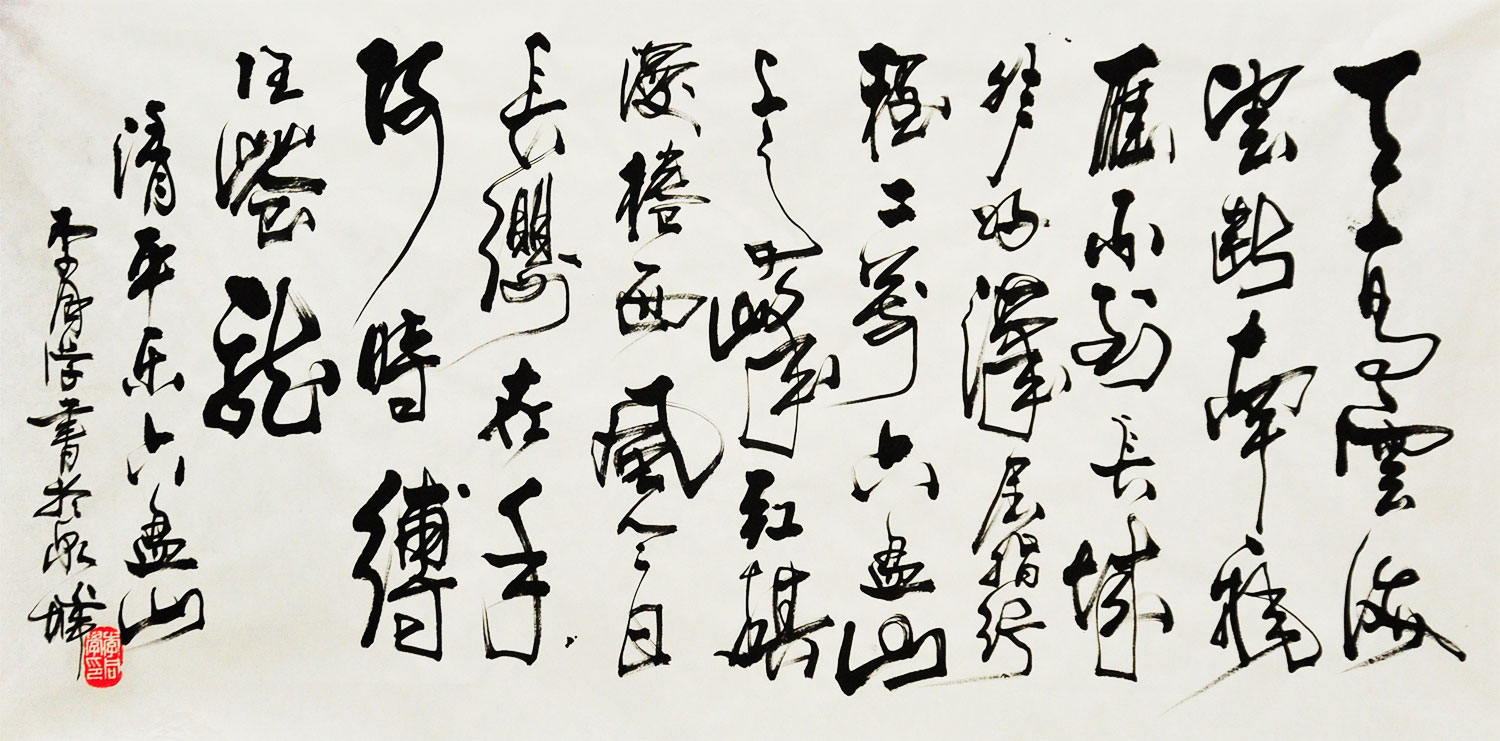 天高雲淡
望斷南飛
雁不到長城
非好漢屈指行
程二萬六盘山
上高峰紅旗
漫捲西風今日
長纓在手
何時縛
住蒼龍
清平乐六盘山
李居学書於泉城